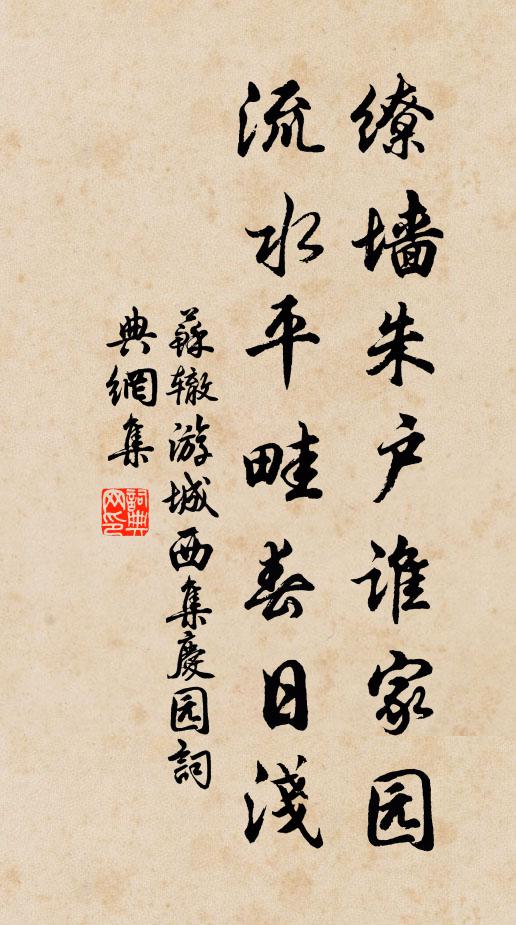 缭墙朱户谁家园
流水平畦春日淺
蘇辙游城西集慶园詞
典網集
詞典网印